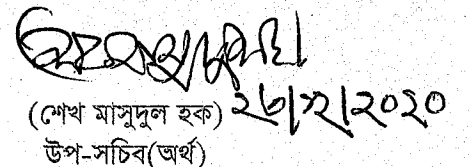 (শেখ মাসুদুল হক) ২৩/১২/২০২০
উপ-সচিব(অর্থ)